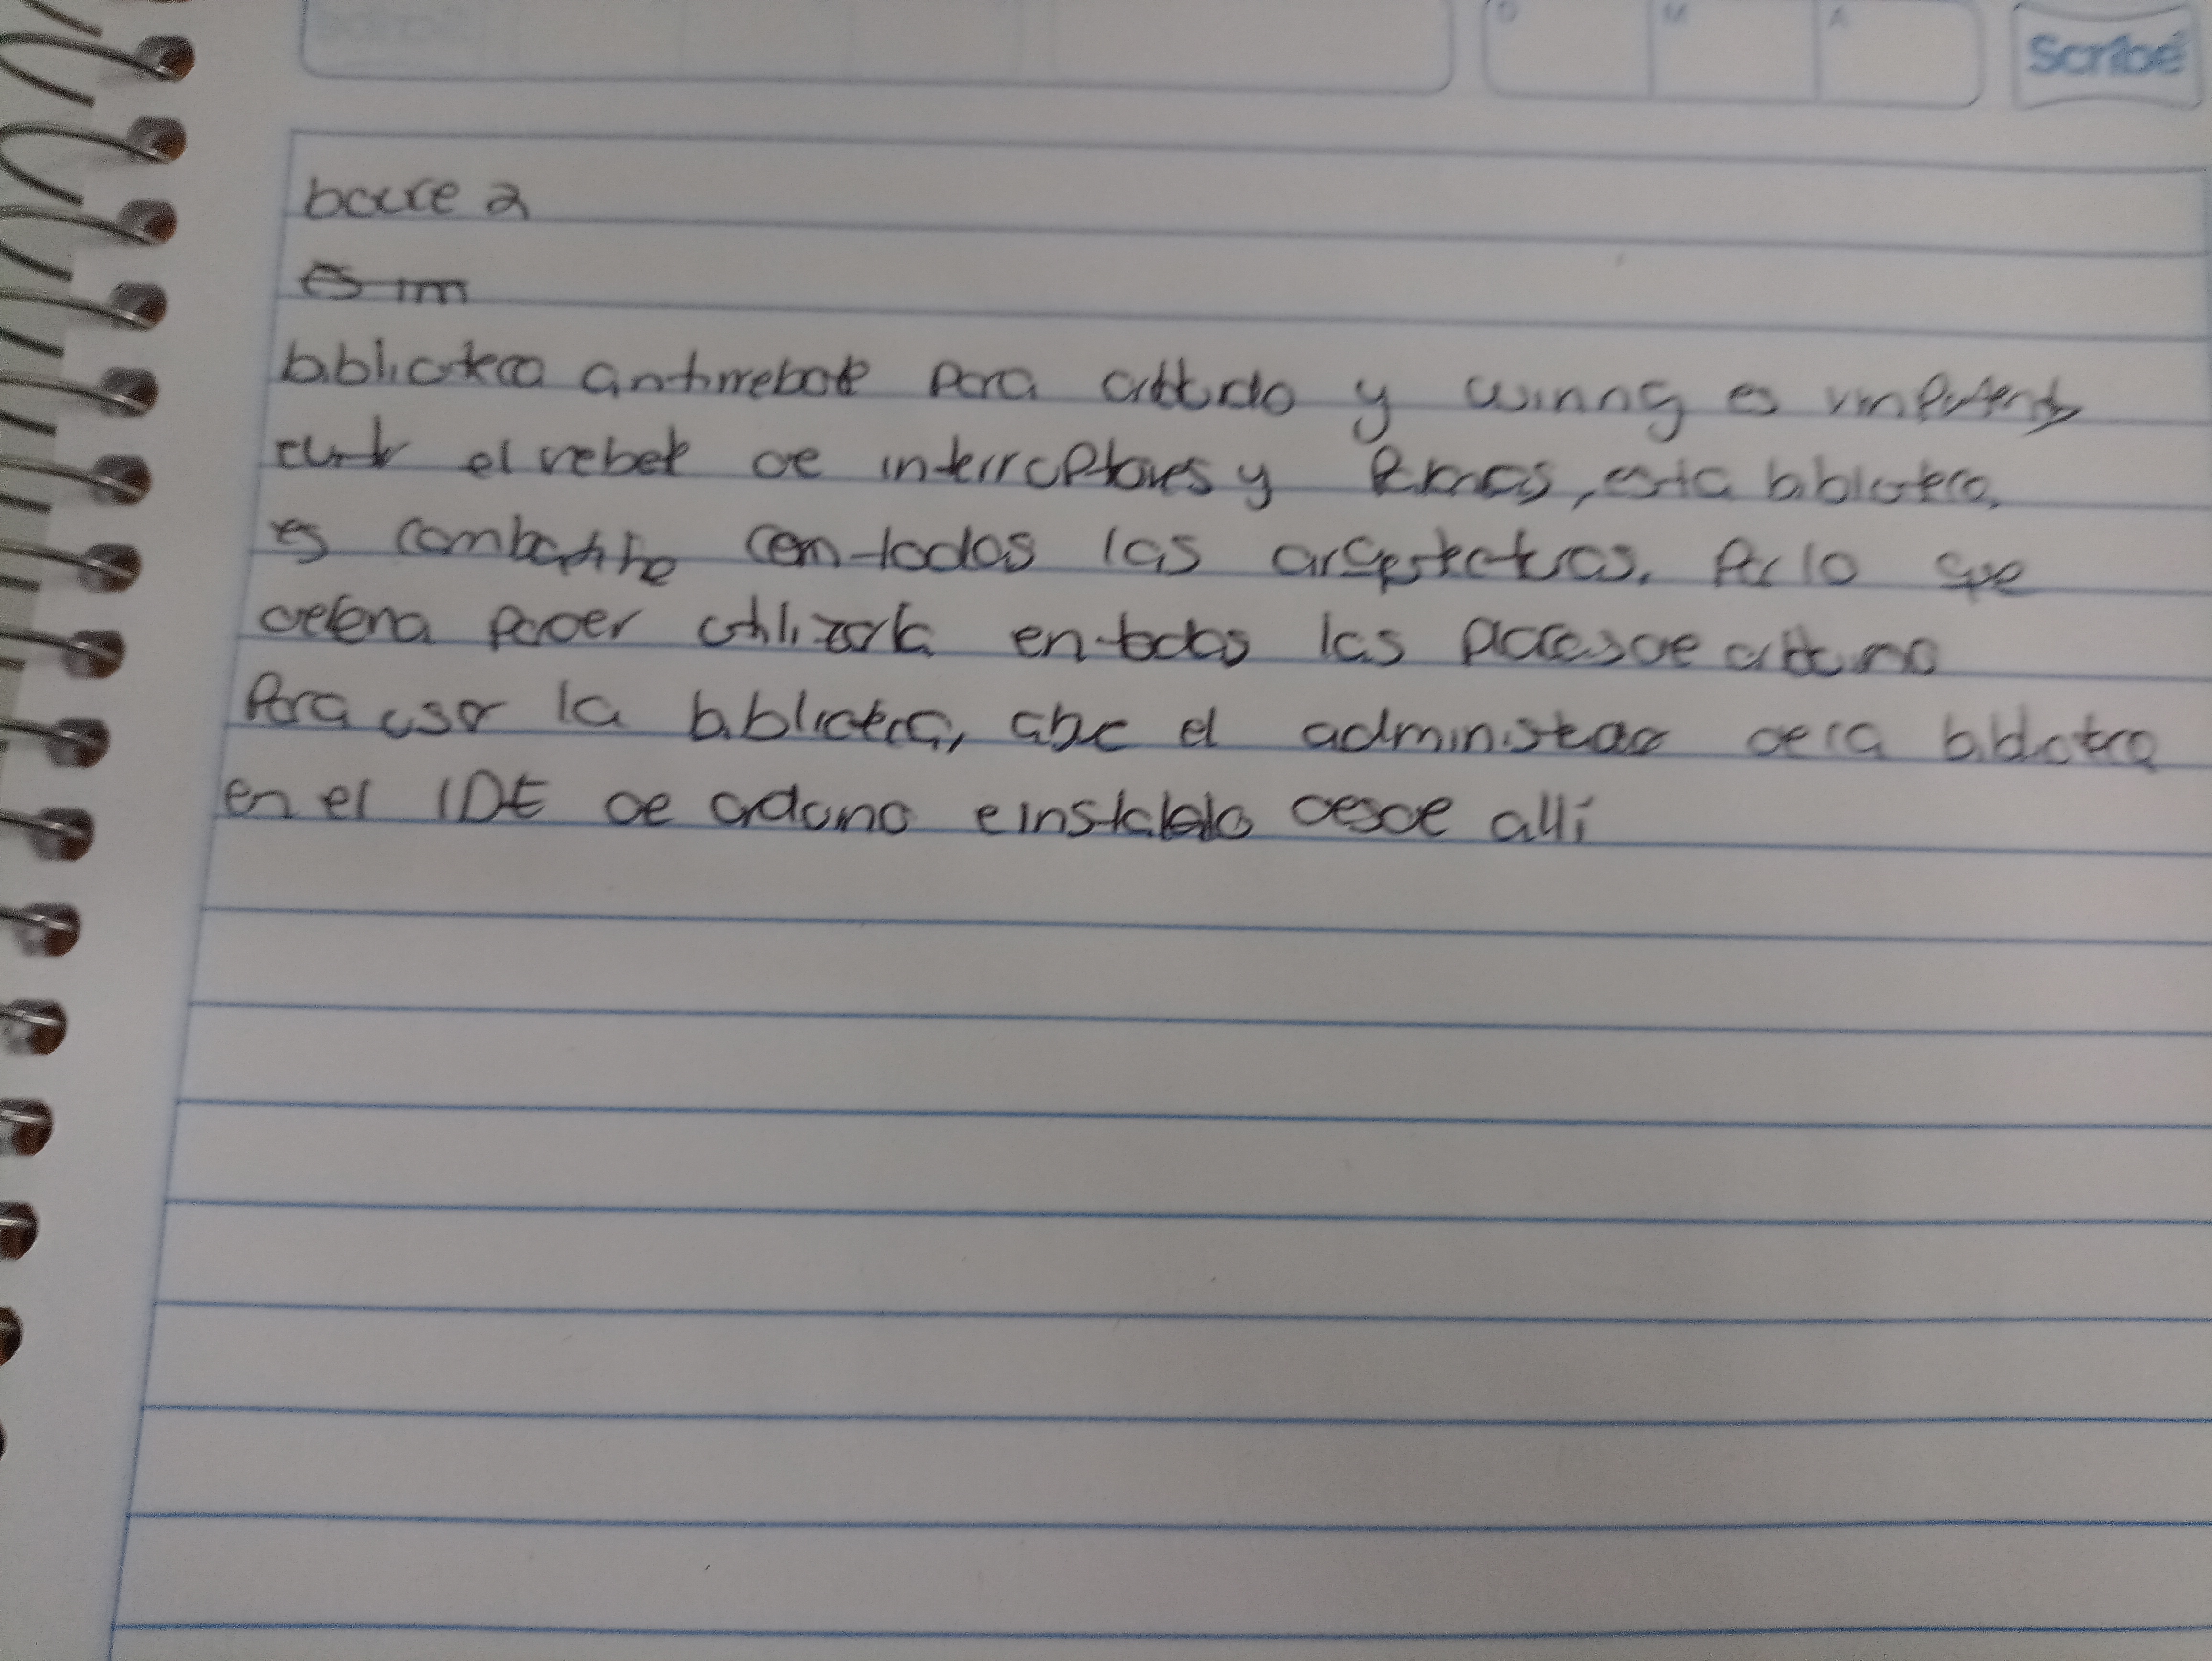 Scribe
D M A
bocre 2
es im
biblioteca antirrebote para y wiring es importante
el rebote de interruptores y esta biblioteca
es con todas las por lo que
poder utilizarla en todas las placas de
Para usar la biblioteca, abre el administrador de la biblioteca
en el IDE de arduino e instalelo desde allí